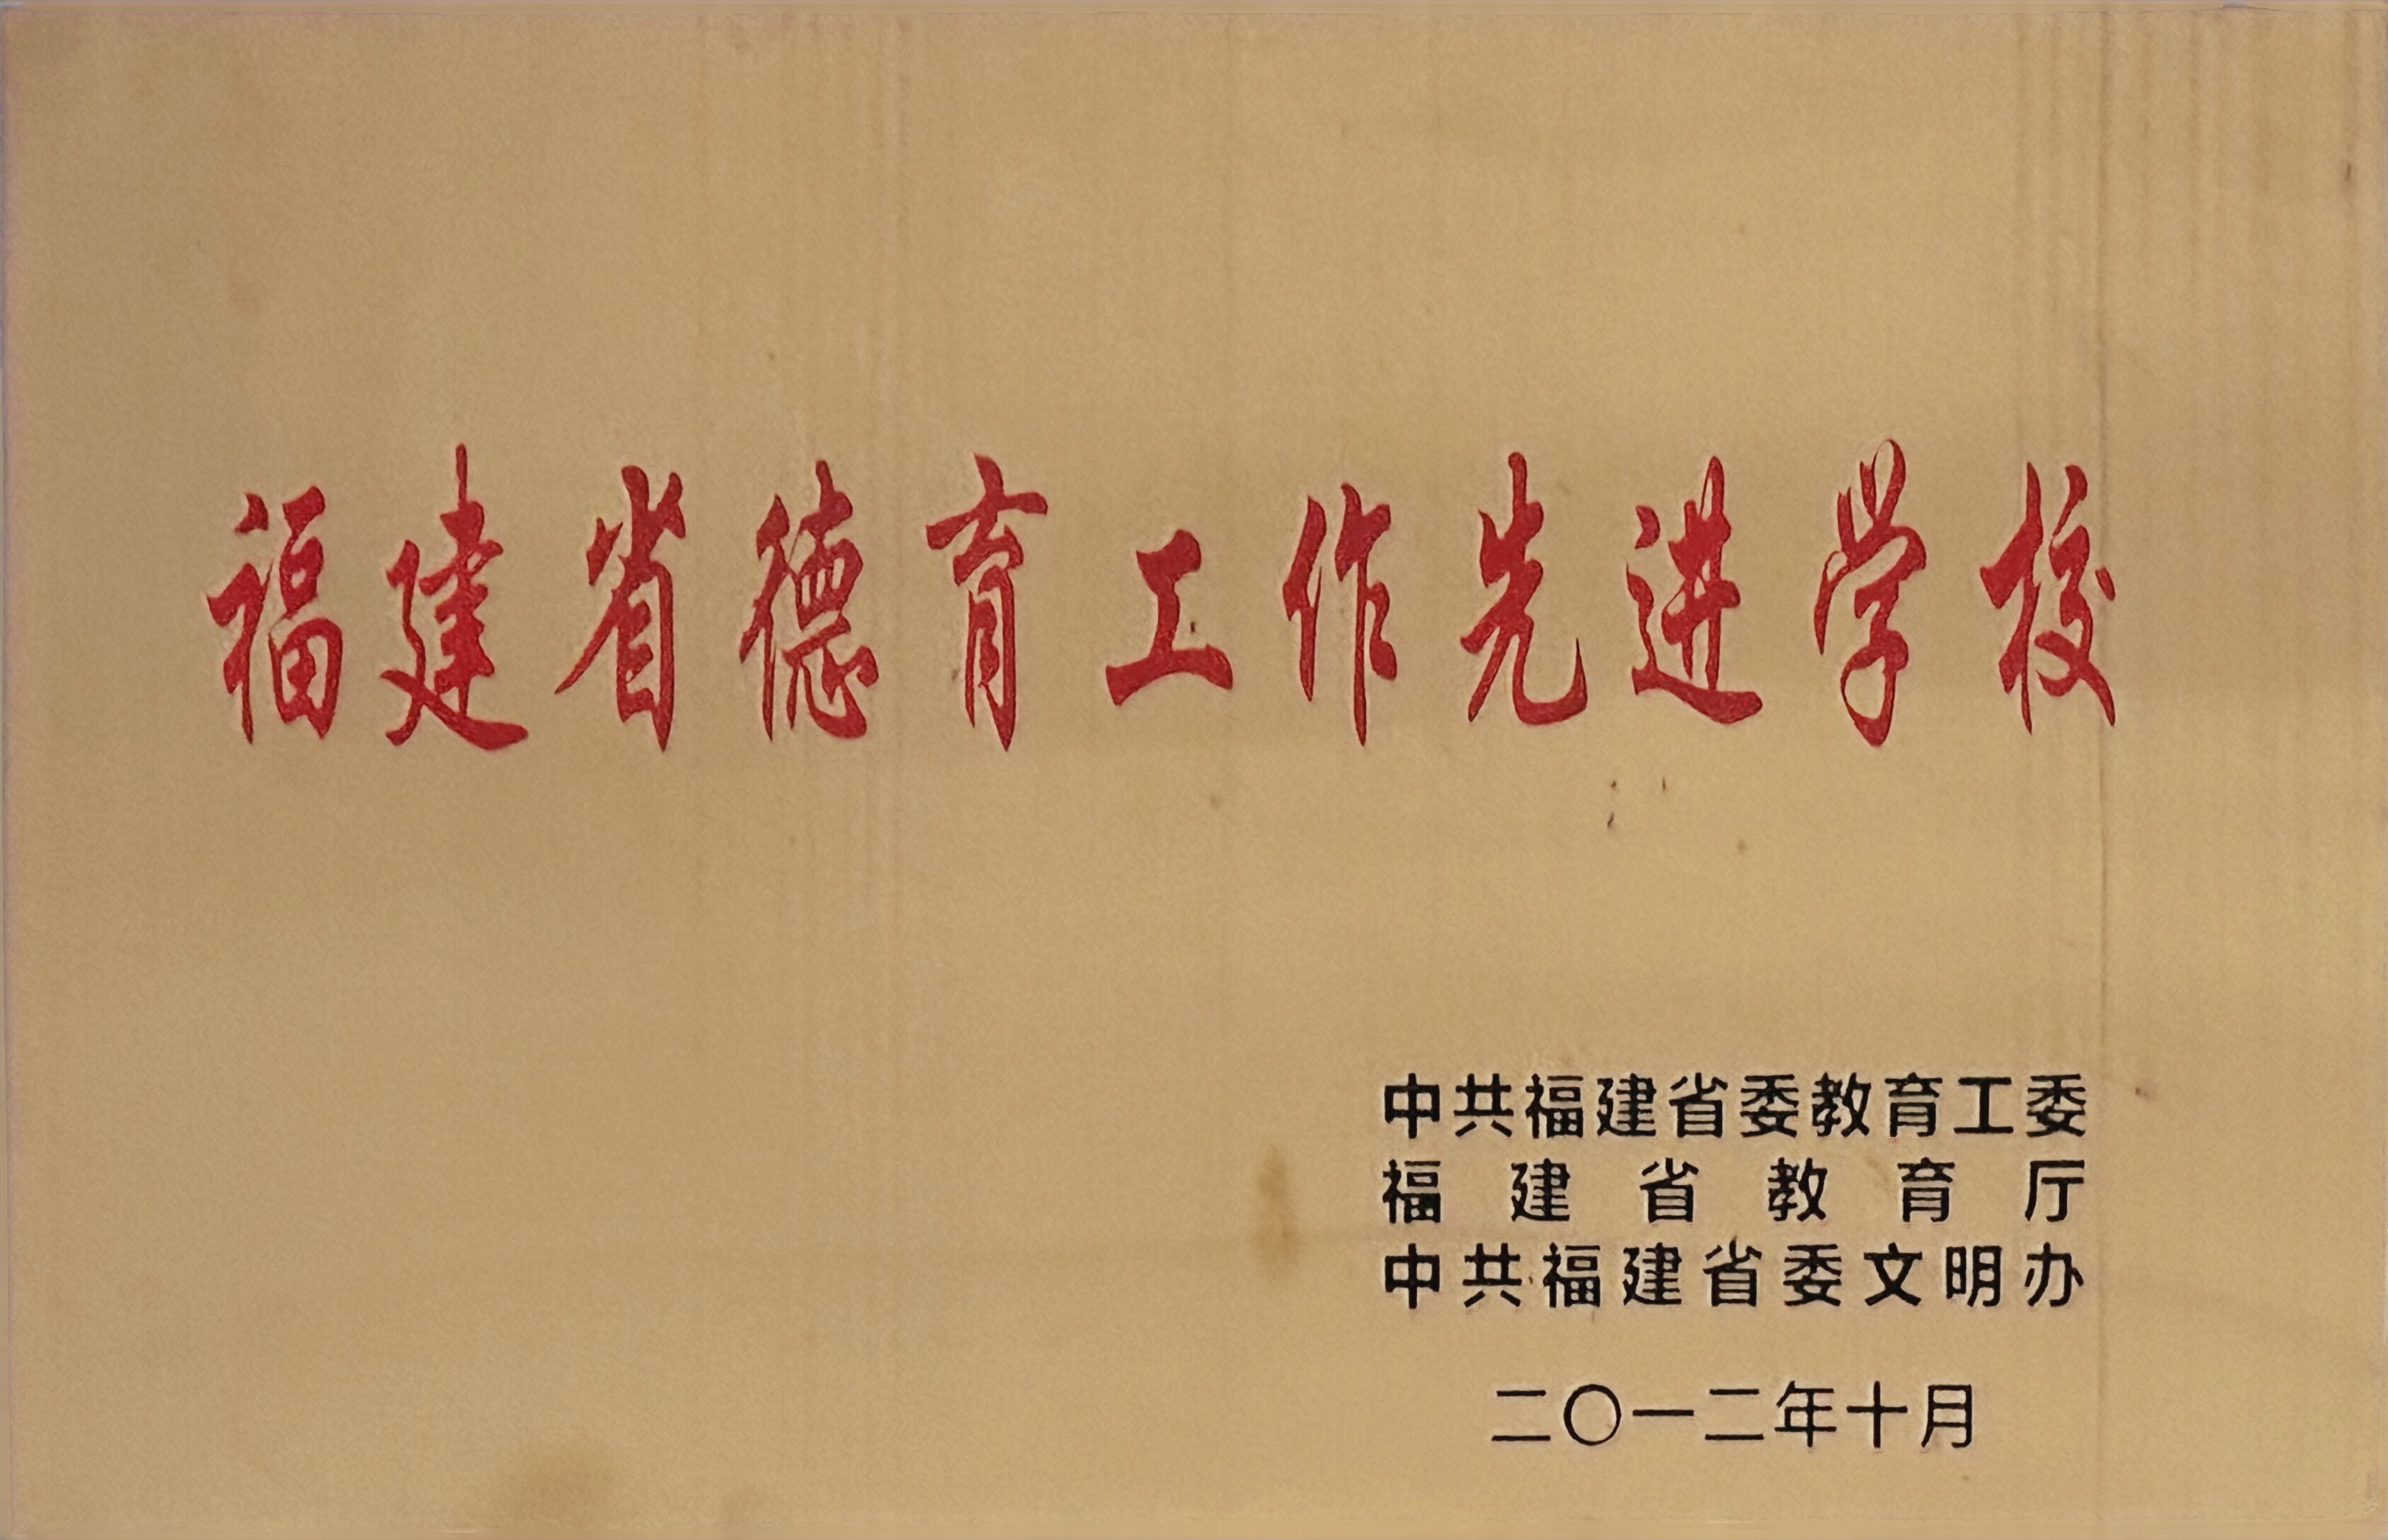 福建省德育工作先进学校
中共福建省委教育工委
福建省教育厅
中共福建省委文明办
二〇一二年十月